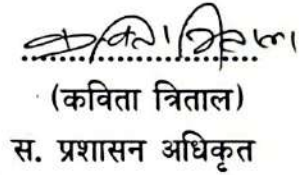 कविता त्रिताल
(कविता त्रिताल)
स. प्रशासन अधिकृत